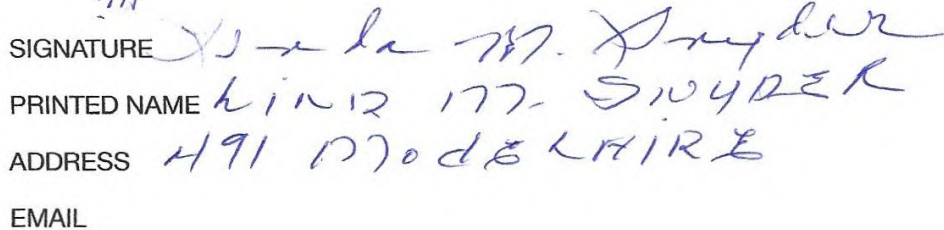 SIGNATURE Linda M. Snyder
PRINTED NAME LINDA M. SNYDER
ADDRESS 491 MODELAIRE
EMAIL